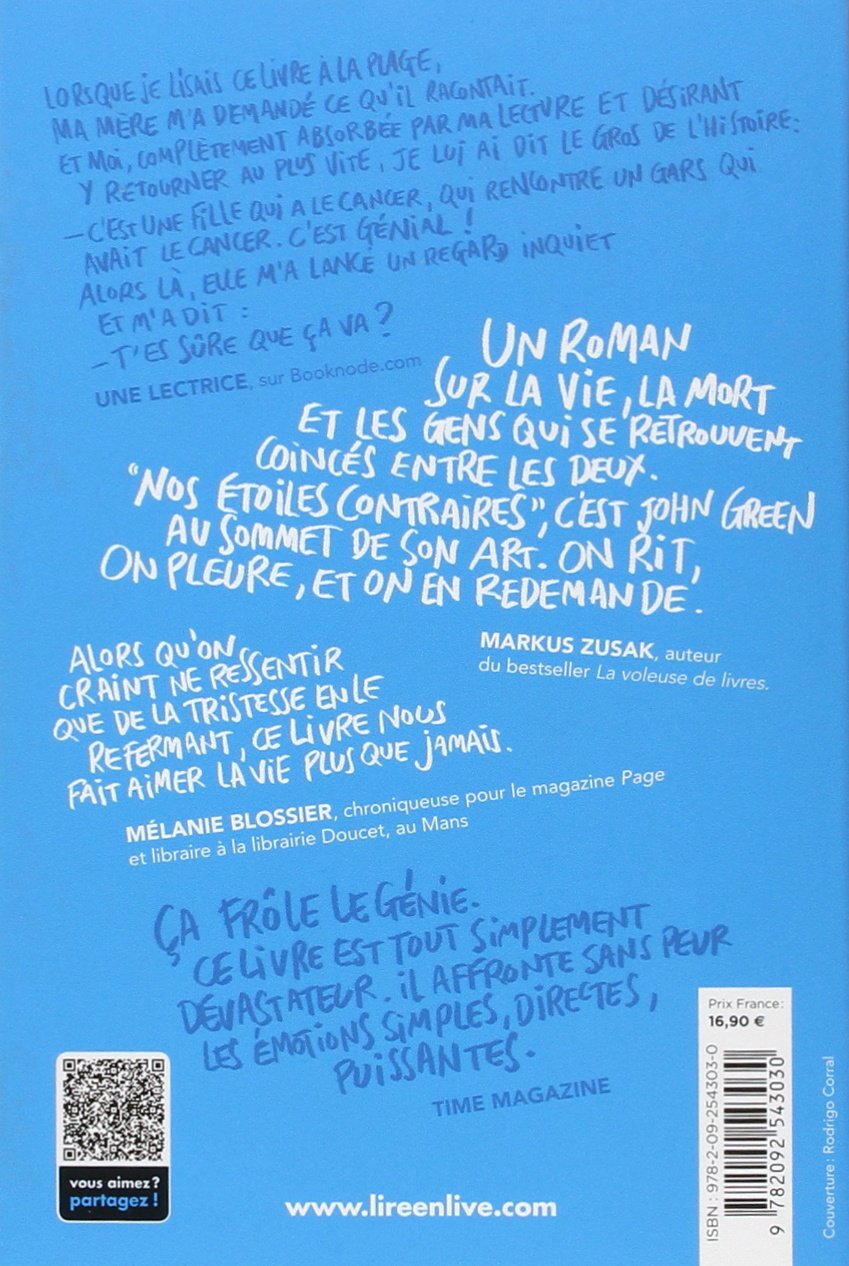 LORSQUE JE LISAIS CE LIVRE À LA PLAGE,
MA MÈRE M'A DEMANDÉ CE QU'IL RACONTAIT.
ET MOI, COMPLÈTEMENT ABSORBÉE PAR MA LECTURE ET DÉSIRANT
Y RETOURNER AU PLUS VITE, JE LUI AI DIT LE GROS DE L'HISTOIRE:
—C'EST UNE FILLE QUI A LE CANCER, QUI RENCONTRE UN GARS QUI
AVAIT LE CANCER. C'EST GÉNIAL !
ALORS LÀ, ELLE M'A LANCÉ UN REGARD INQUIET
ET M'A DIT :
—T'ES SÛRE QUE ÇA VA ?
UNE LECTRICE, sur Booknode.com
UN ROMAN
SUR LA VIE, LA MORT
ET LES GENS QUI SE RETROUVENT
COINCÉS ENTRE LES DEUX.
"NOS ÉTOILES CONTRAIRES", C'EST JOHN GREEN
AU SOMMET DE SON ART. ON RIT,
ON PLEURE, ET ON EN REDEMANDE.
MARKUS ZUSAK, auteur
du bestseller La voleuse de livres.
ALORS QU'ON
CRAINT NE RESSENTIR
QUE DE LA TRISTESSE EN LE
REFERMANT, CE LIVRE NOUS
FAIT AIMER LA VIE PLUS QUE JAMAIS.
MÉLANIE BLOSSIER, chroniqueuse pour le magazine Page
et libraire à la librairie Doucet, au Mans
ÇA FRÔLE LE GÉNIE.
CE LIVRE EST TOUT SIMPLEMENT
DÉVASTATEUR. IL AFFRONTE SANS PEUR
LES ÉMOTIONS SIMPLES, DIRECTES,
PUISSANTES.
TIME MAGAZINE
vous aimez?
partagez !
www.lireenlive.com
Prix France:
16,90 €
ISBN : 978-2-09-254303-0
9 782092 543030
Couverture : Rodrigo Corral